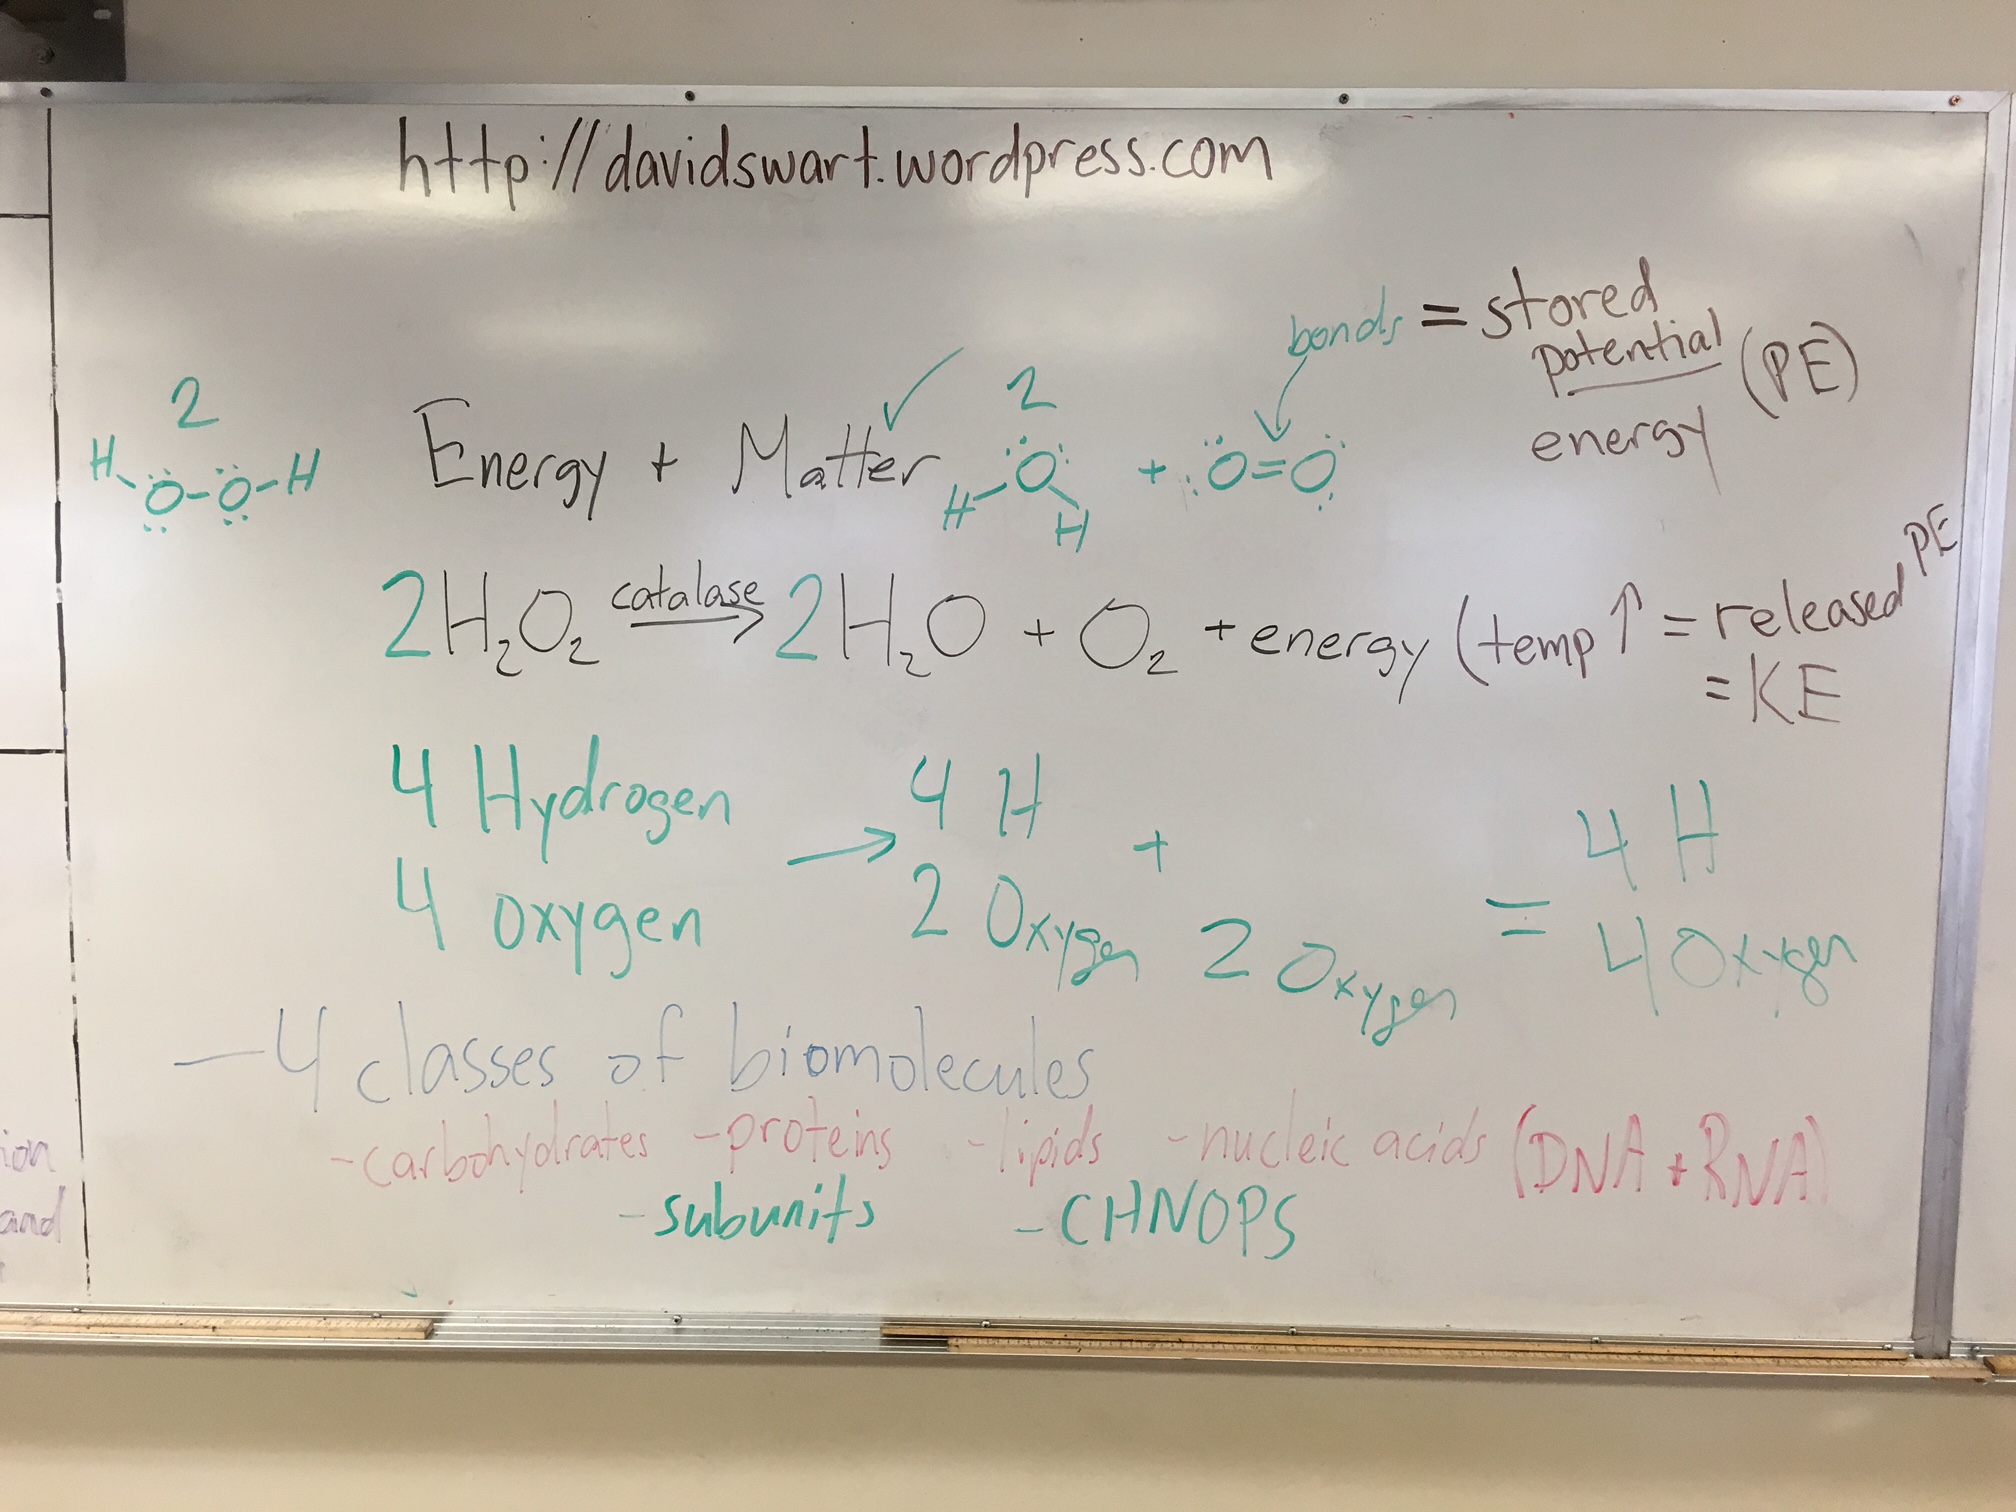 http://davidswart.wordpress.com
bonds = stored
potential (PE)
energy
2
H-O-O-H
Energy + Matter
2
H O H + O=O
2H₂O₂ catalase → 2H₂O + O₂ + energy (temp ↑ = released PE
= KE
4 Hydrogen → 4 H + = 4 H
4 oxygen 2 Oxygen 2 Oxygen 4 Oxygen
— 4 classes of biomolecules
- carbohydrates - proteins - lipids - nucleic acids (DNA + RNA)
- subunits - CHNOPS
ion
and